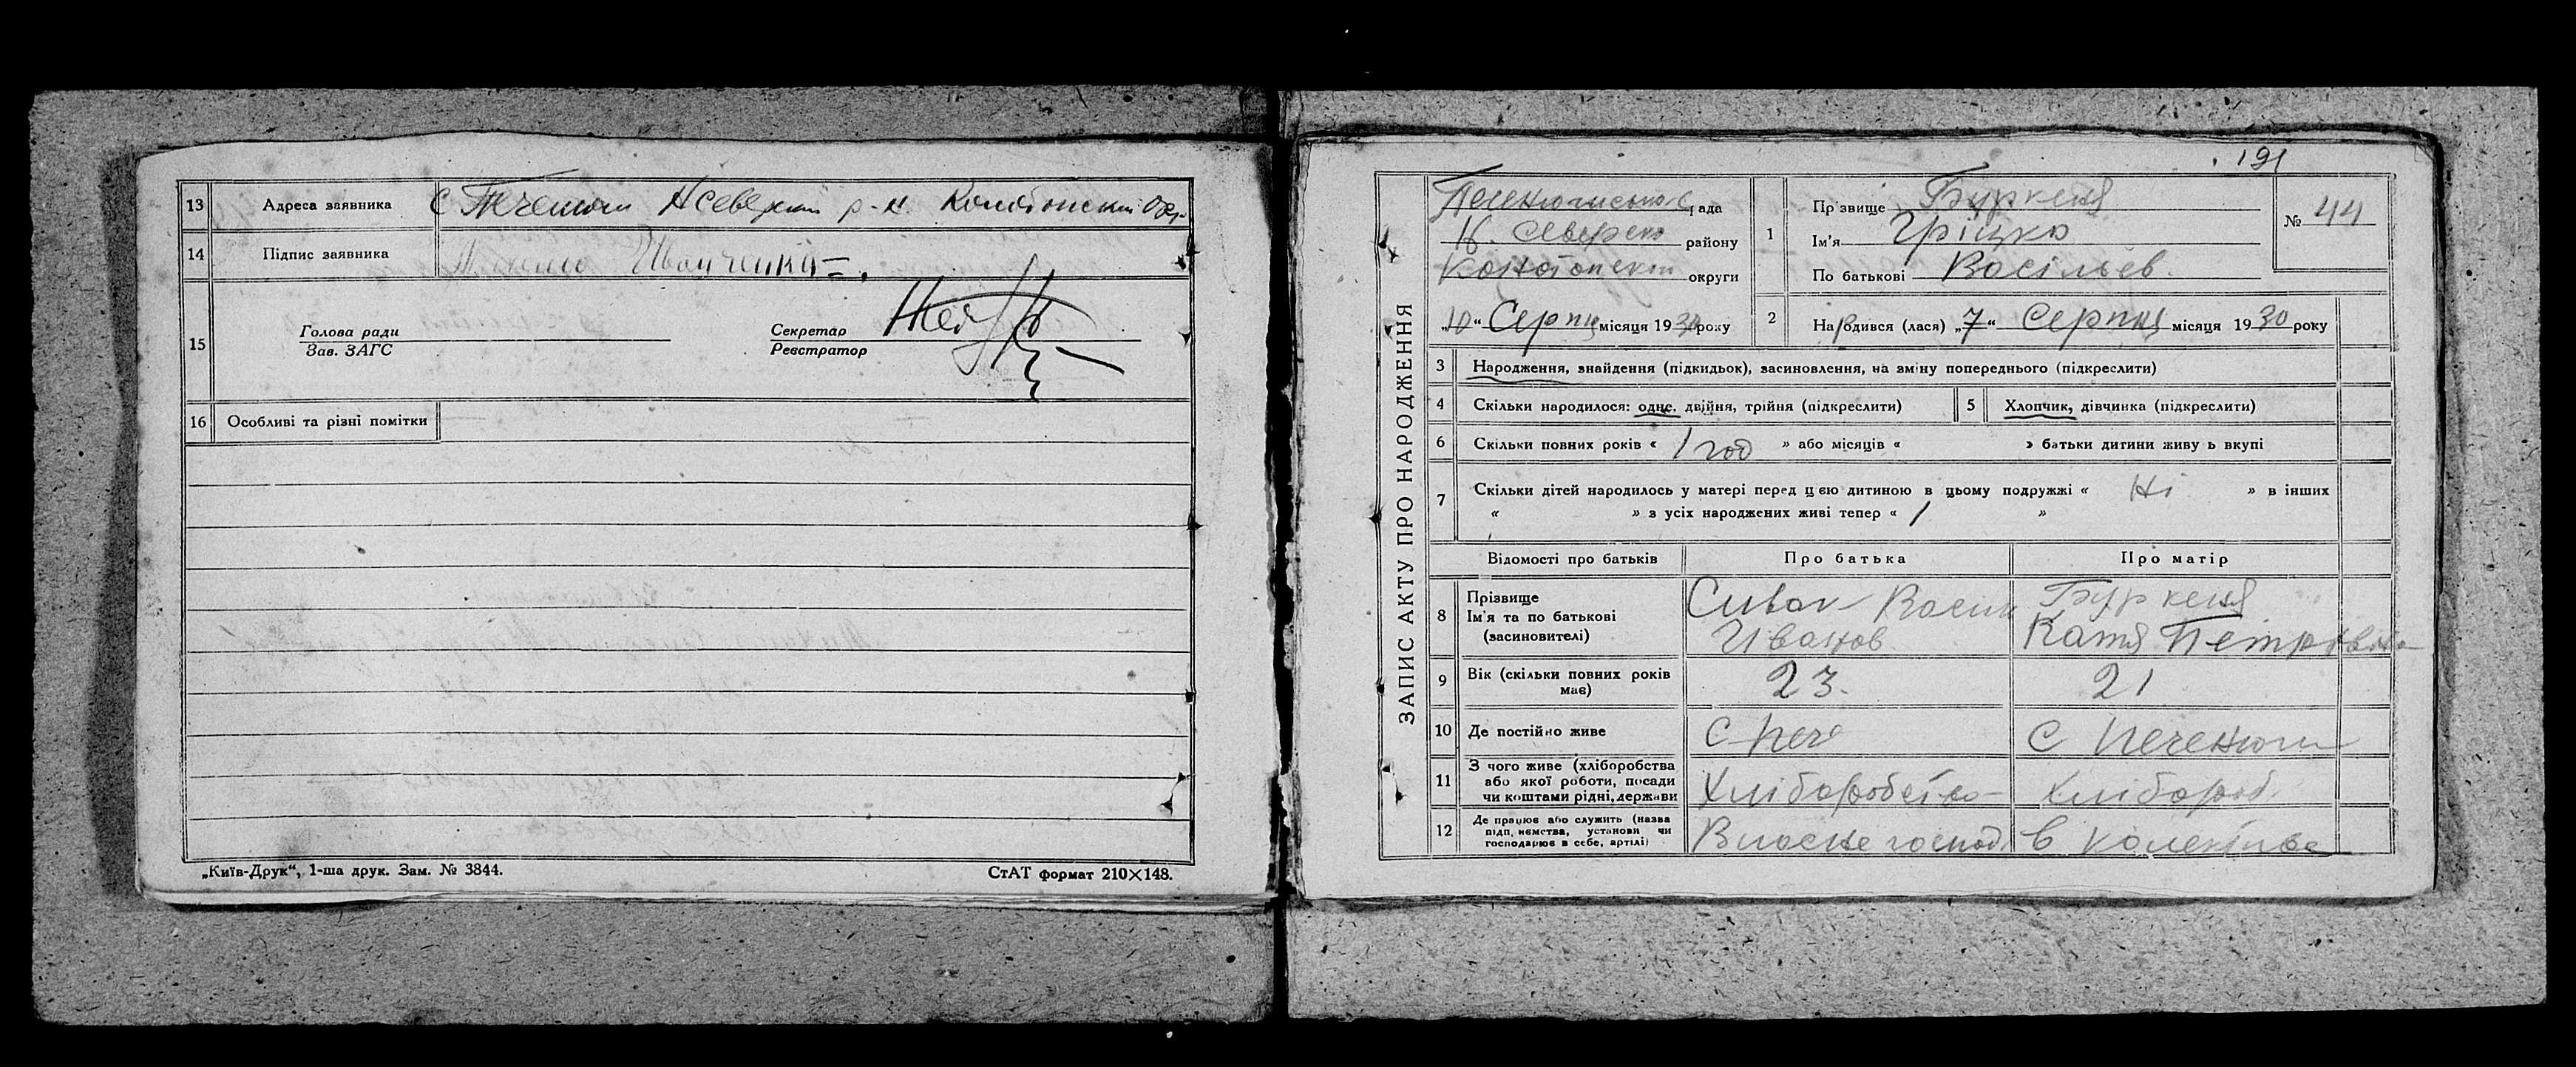 13 Адреса заявника с Печенюги Н Северский р-н. Конотопский Окр.
14 Підпис заявника Иванченко
15 Голова ради
Зав. ЗАГС
Секретар
Реєстратор
16 Особливі та різні помітки
„Київ-Друк“, 1-ша друк. Зам. № 3844.
СтАТ формат 210×148.
191
ЗАПИС АКТУ ПРО НАРОДЖЕННЯ
Печенюгиської С рада
Н. Северско району
Конотопскої округи
„10“ Серпня місяця 1930 року
1 Прізвище Буркеня
Ім'я Гріцко
По батькові Васільев
№ 44
2 Народився (лася) „7“ Серпня місяця 1930 року
3 Народження, знайдення (підкидьок), засиновлення, на зміну попереднього (підкреслити)
4 Скільки народилося: одне, двійня, трійня (підкреслити)
5 Хлопчик, дівчинка (підкреслити)
6 Скільки повних років « 1 год » або місяців « » батьки дитини живуть вкупі
7 Скільки дітей народилось у матері перед цією дитиною в цьому подружжі « Ні » в інших
« » з усіх народжених живі тепер « 1 »
Відомості про батьків Про батька Про матір
8 Прізвище
Ім'я та по батькові
(засиновителі)
Сивак Васил
Иванов
Буркеня
Катя Петрівна
9 Вік (скільки повних років має) 23. 21
10 Де постійно живе С Пече С Печенюги
11 З чого живе (хліборобства
або якої роботи, посади
чи коштами рідні, держави
Хліборобство Хлібороб.
12 Де працює або служить (назва
підприємства, установи чи
господарює в себе, артілі)
Власне господ. в колективе